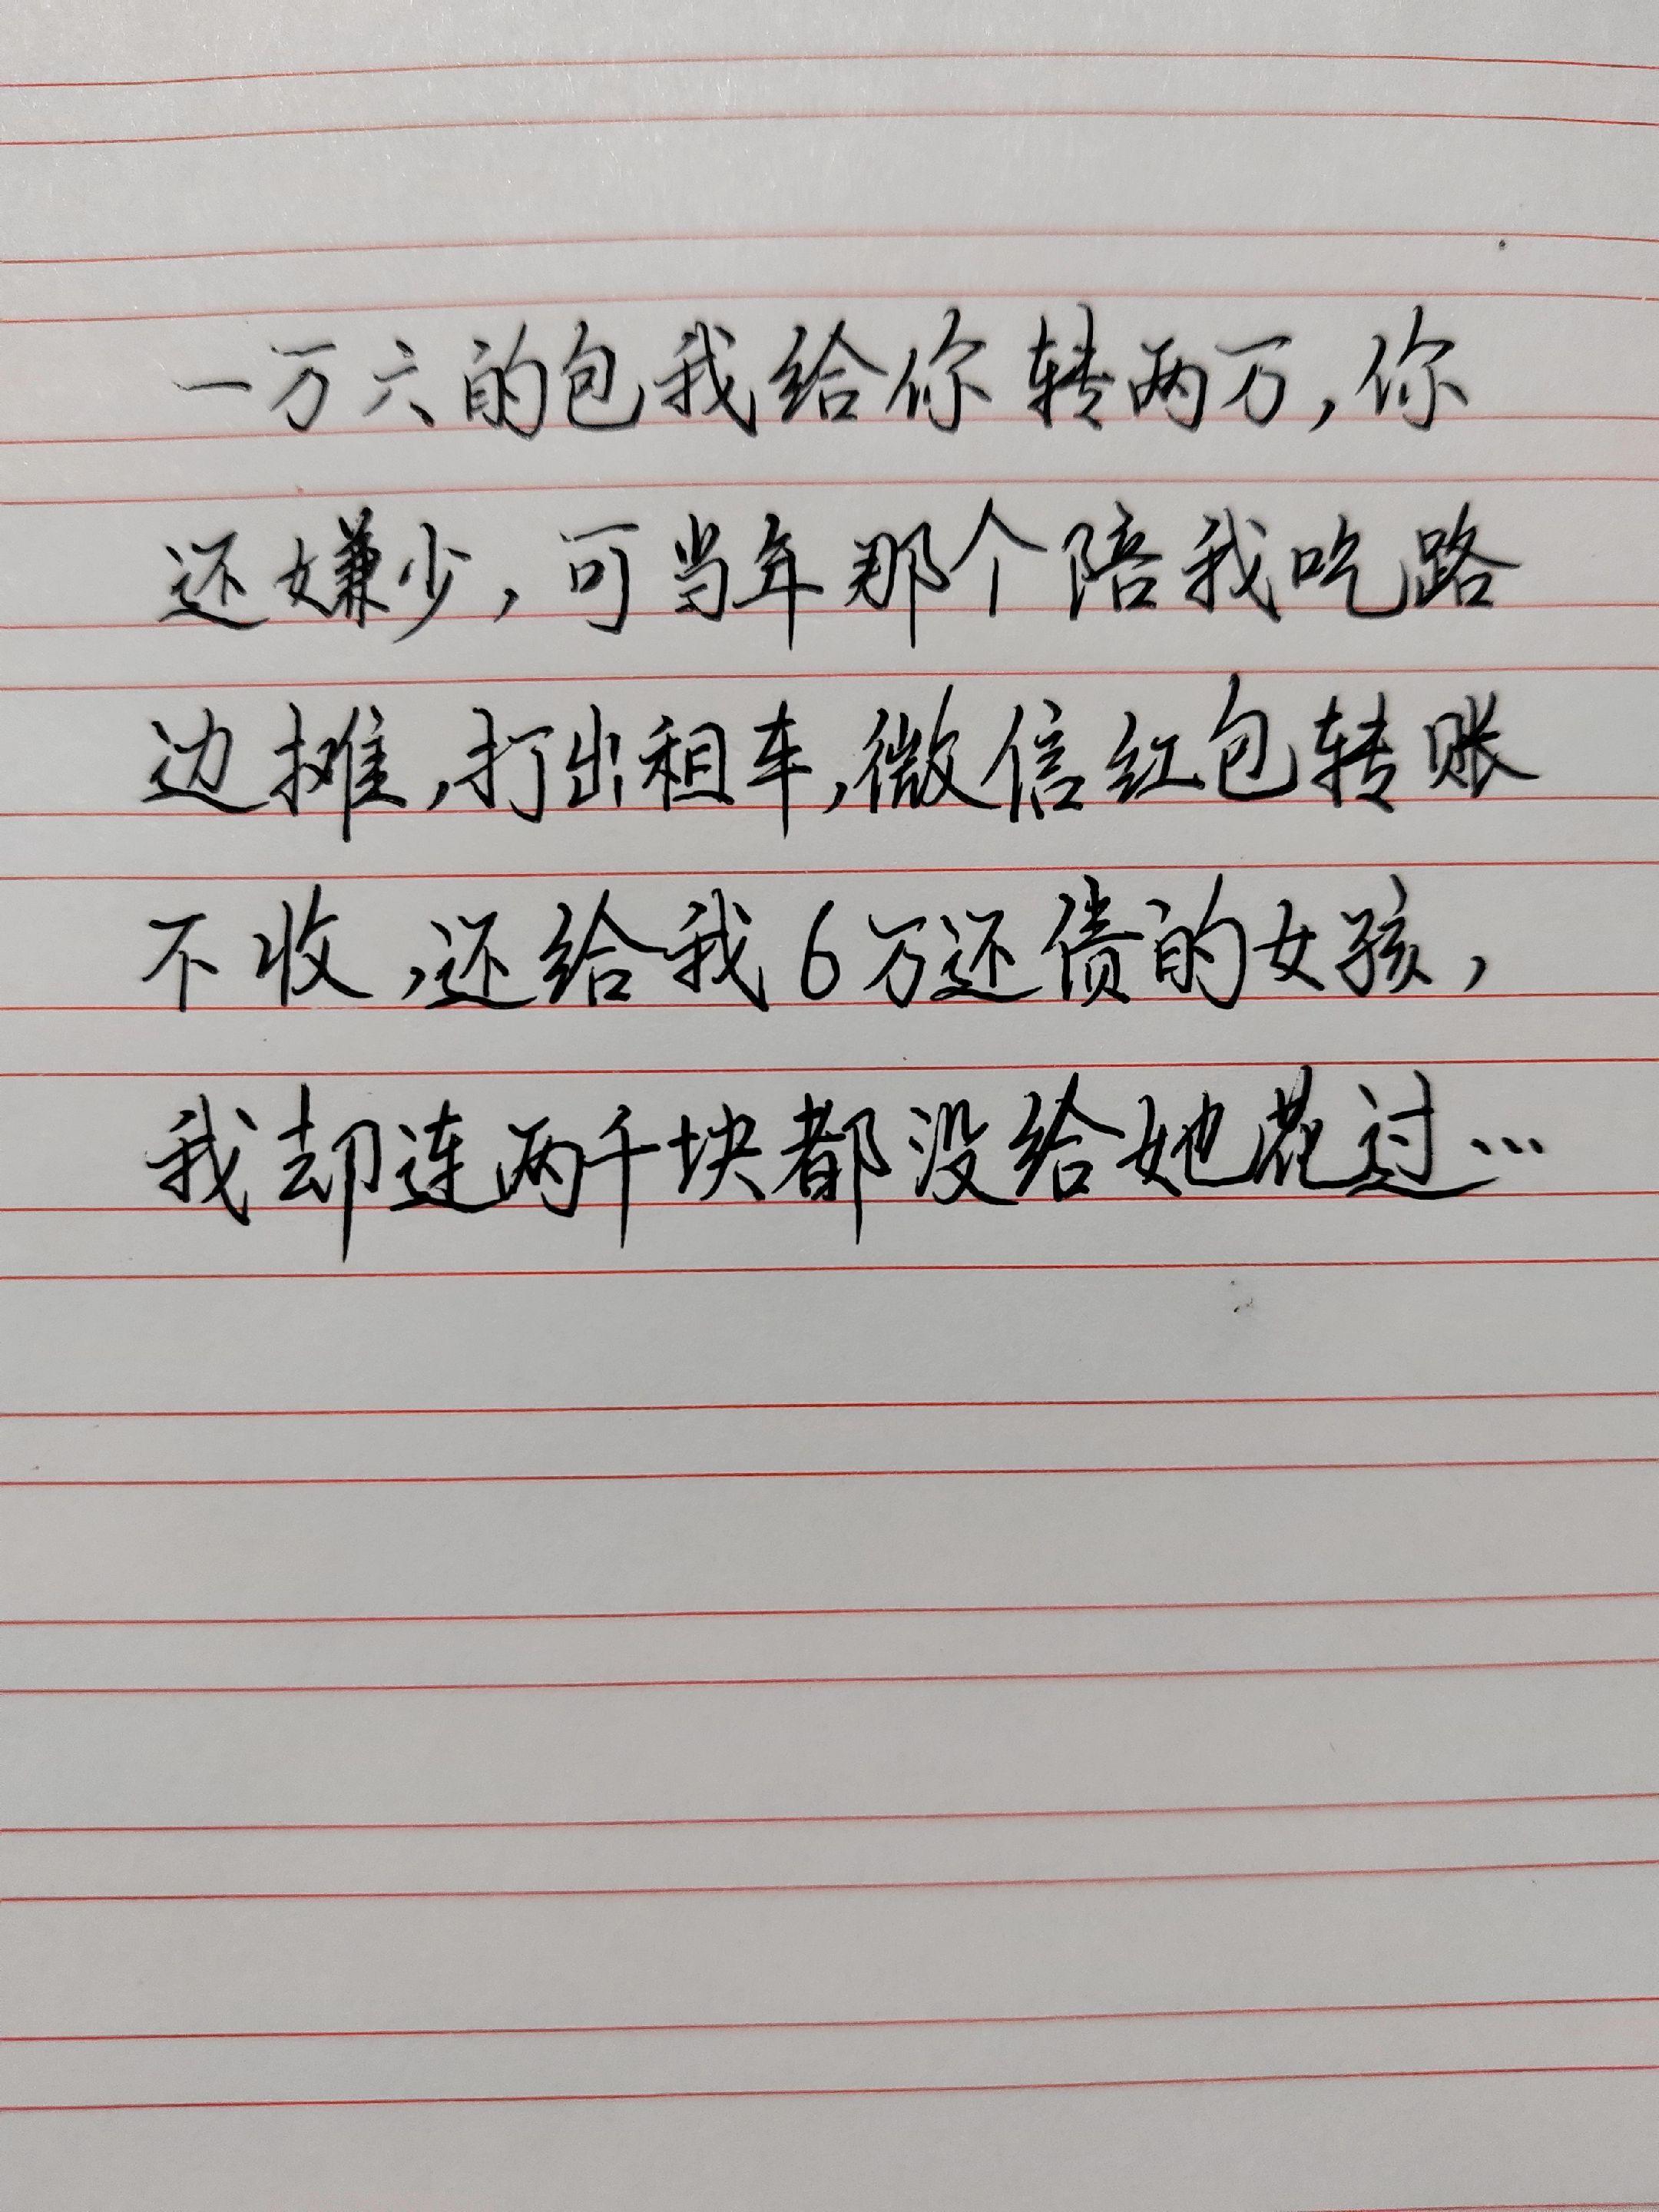 一万六的包我给你转两万,你
还嫌少,可当年那个陪我吃路
边摊,打出租车,微信红包转账
不收,还给我6万还债的女孩,
我却连两千块都没给她花过…